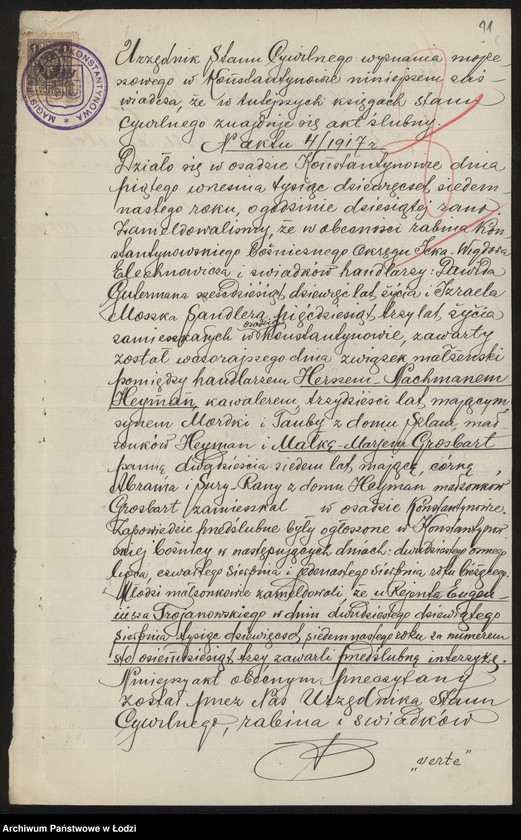 91
MAGIS KONSTANTYNOWA
Urzędnik Stanu Cywilnego wyznania mojże-
szowego w Konstantynowie niniejszem zaś-
wiadcza, że w tutejszych księgach stanu
cywilnego znajduje się akt ślubny.
N aktu 4/1917 r.
Działo się w osadzie Konstantynowie dnia
piątego września tysiąc dziewięćset siedem-
nastego roku, o godzinie dziesiątej rano.
Zameldowaliśmy, że w obecności rabina Kon-
stantynowskiego Bóśnicznego Okręgu Icka-Wigdora
Elechnowicza i świadków handlarzy: Dawida
Gutermana sześdziesiąt dziewięć lat życia i Izraela
Moszka Sandlera pięćdziesiąt trzy lat życia
zamieszkałych w osadzie Konstantynowie, zawarty
został wczorajszego dnia związek małżeński
pomiędzy handlarzem Herszem-Nachmanem
Heyman, kawalerem, trzydzieści lat mającym,
synem Mordki i Tauby z domu Szlam, mał-
żonków Heyman i Małką-Marjem Grosbart
panną dwadzieścia siedem lat mającą, córką
Abrama i Sury-Rany z domu Heyman małżonków
Grosbart zamieszkał w osadzie Konstantynowie.
Zapowiedzie przedślubne były ogłoszone w Konstantynow
skiej bóśnicy w następujących dniach: dwudziestego ósmego
lipca, czwartego sierpnia i jedenastego sierpnia roku bieżącego.
Młodzi małżonkowie zameldowali, że u Rejenta Eugen-
iusza Trojanowskiego w dniu dwudziestego dziewiątego
sierpnia tysiąc dziewięćset siedemnastego roku za numerem
sto ośiemdziesiąt trzy zawarli przedślubną intercyzę.
Niniejszy akt obecnym przeczytany
został przez Nas Urzędnika Stanu
Cywilnego, rabina i świadków
„verte"
Archiwum Państwowe w Łodzi